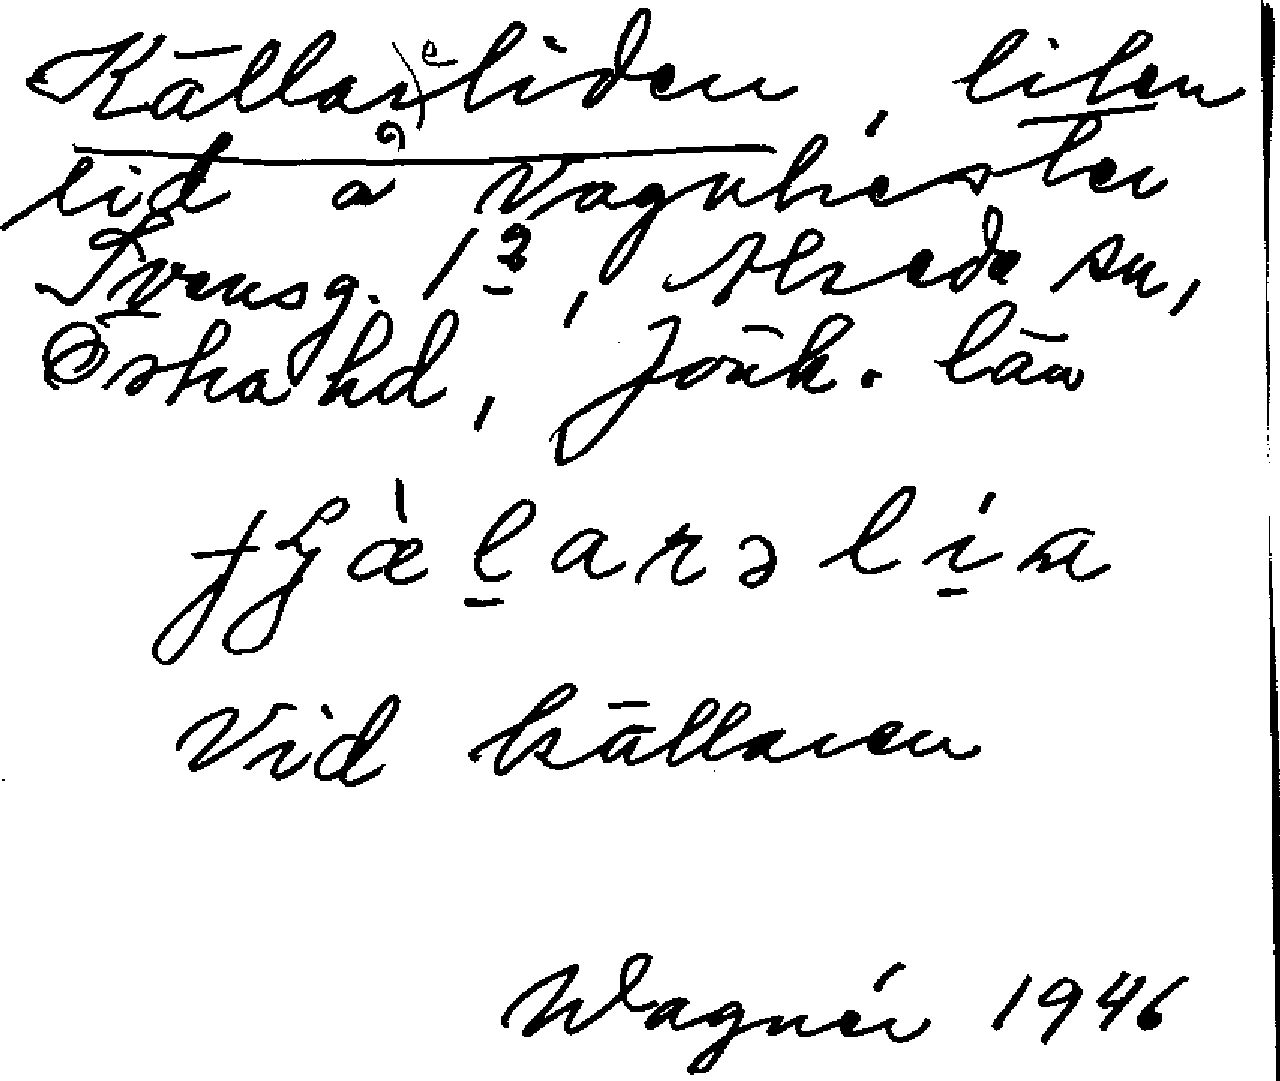 Källareliden, liten
lid å Vagnhester
Svensg. 1², Alseda sn,
Östra hd, Jönk. län
ʃʃæ̀larəlia
Vid källaren
Wagnér 1946